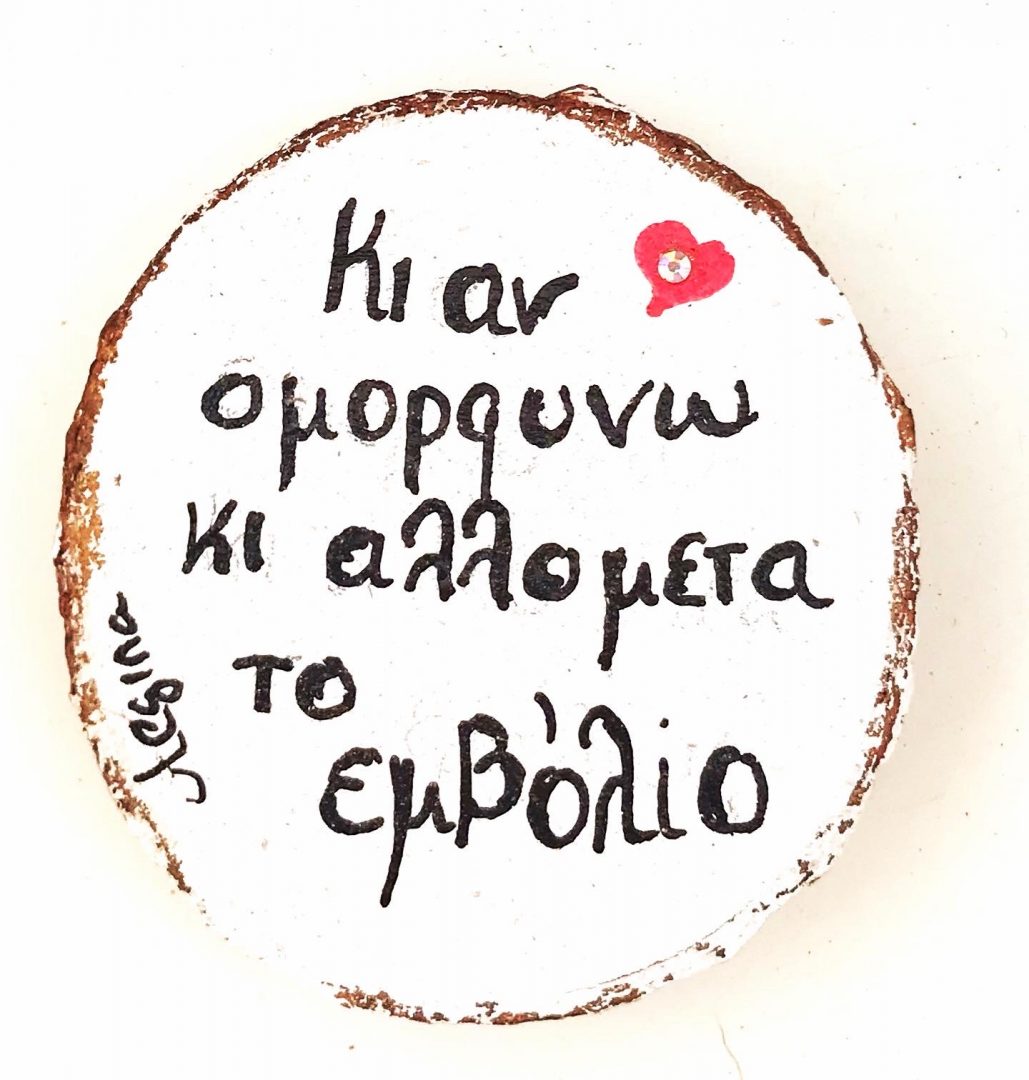 Κι αν
ομορφυνω
κι αλλο μετα
το
εμβόλιο